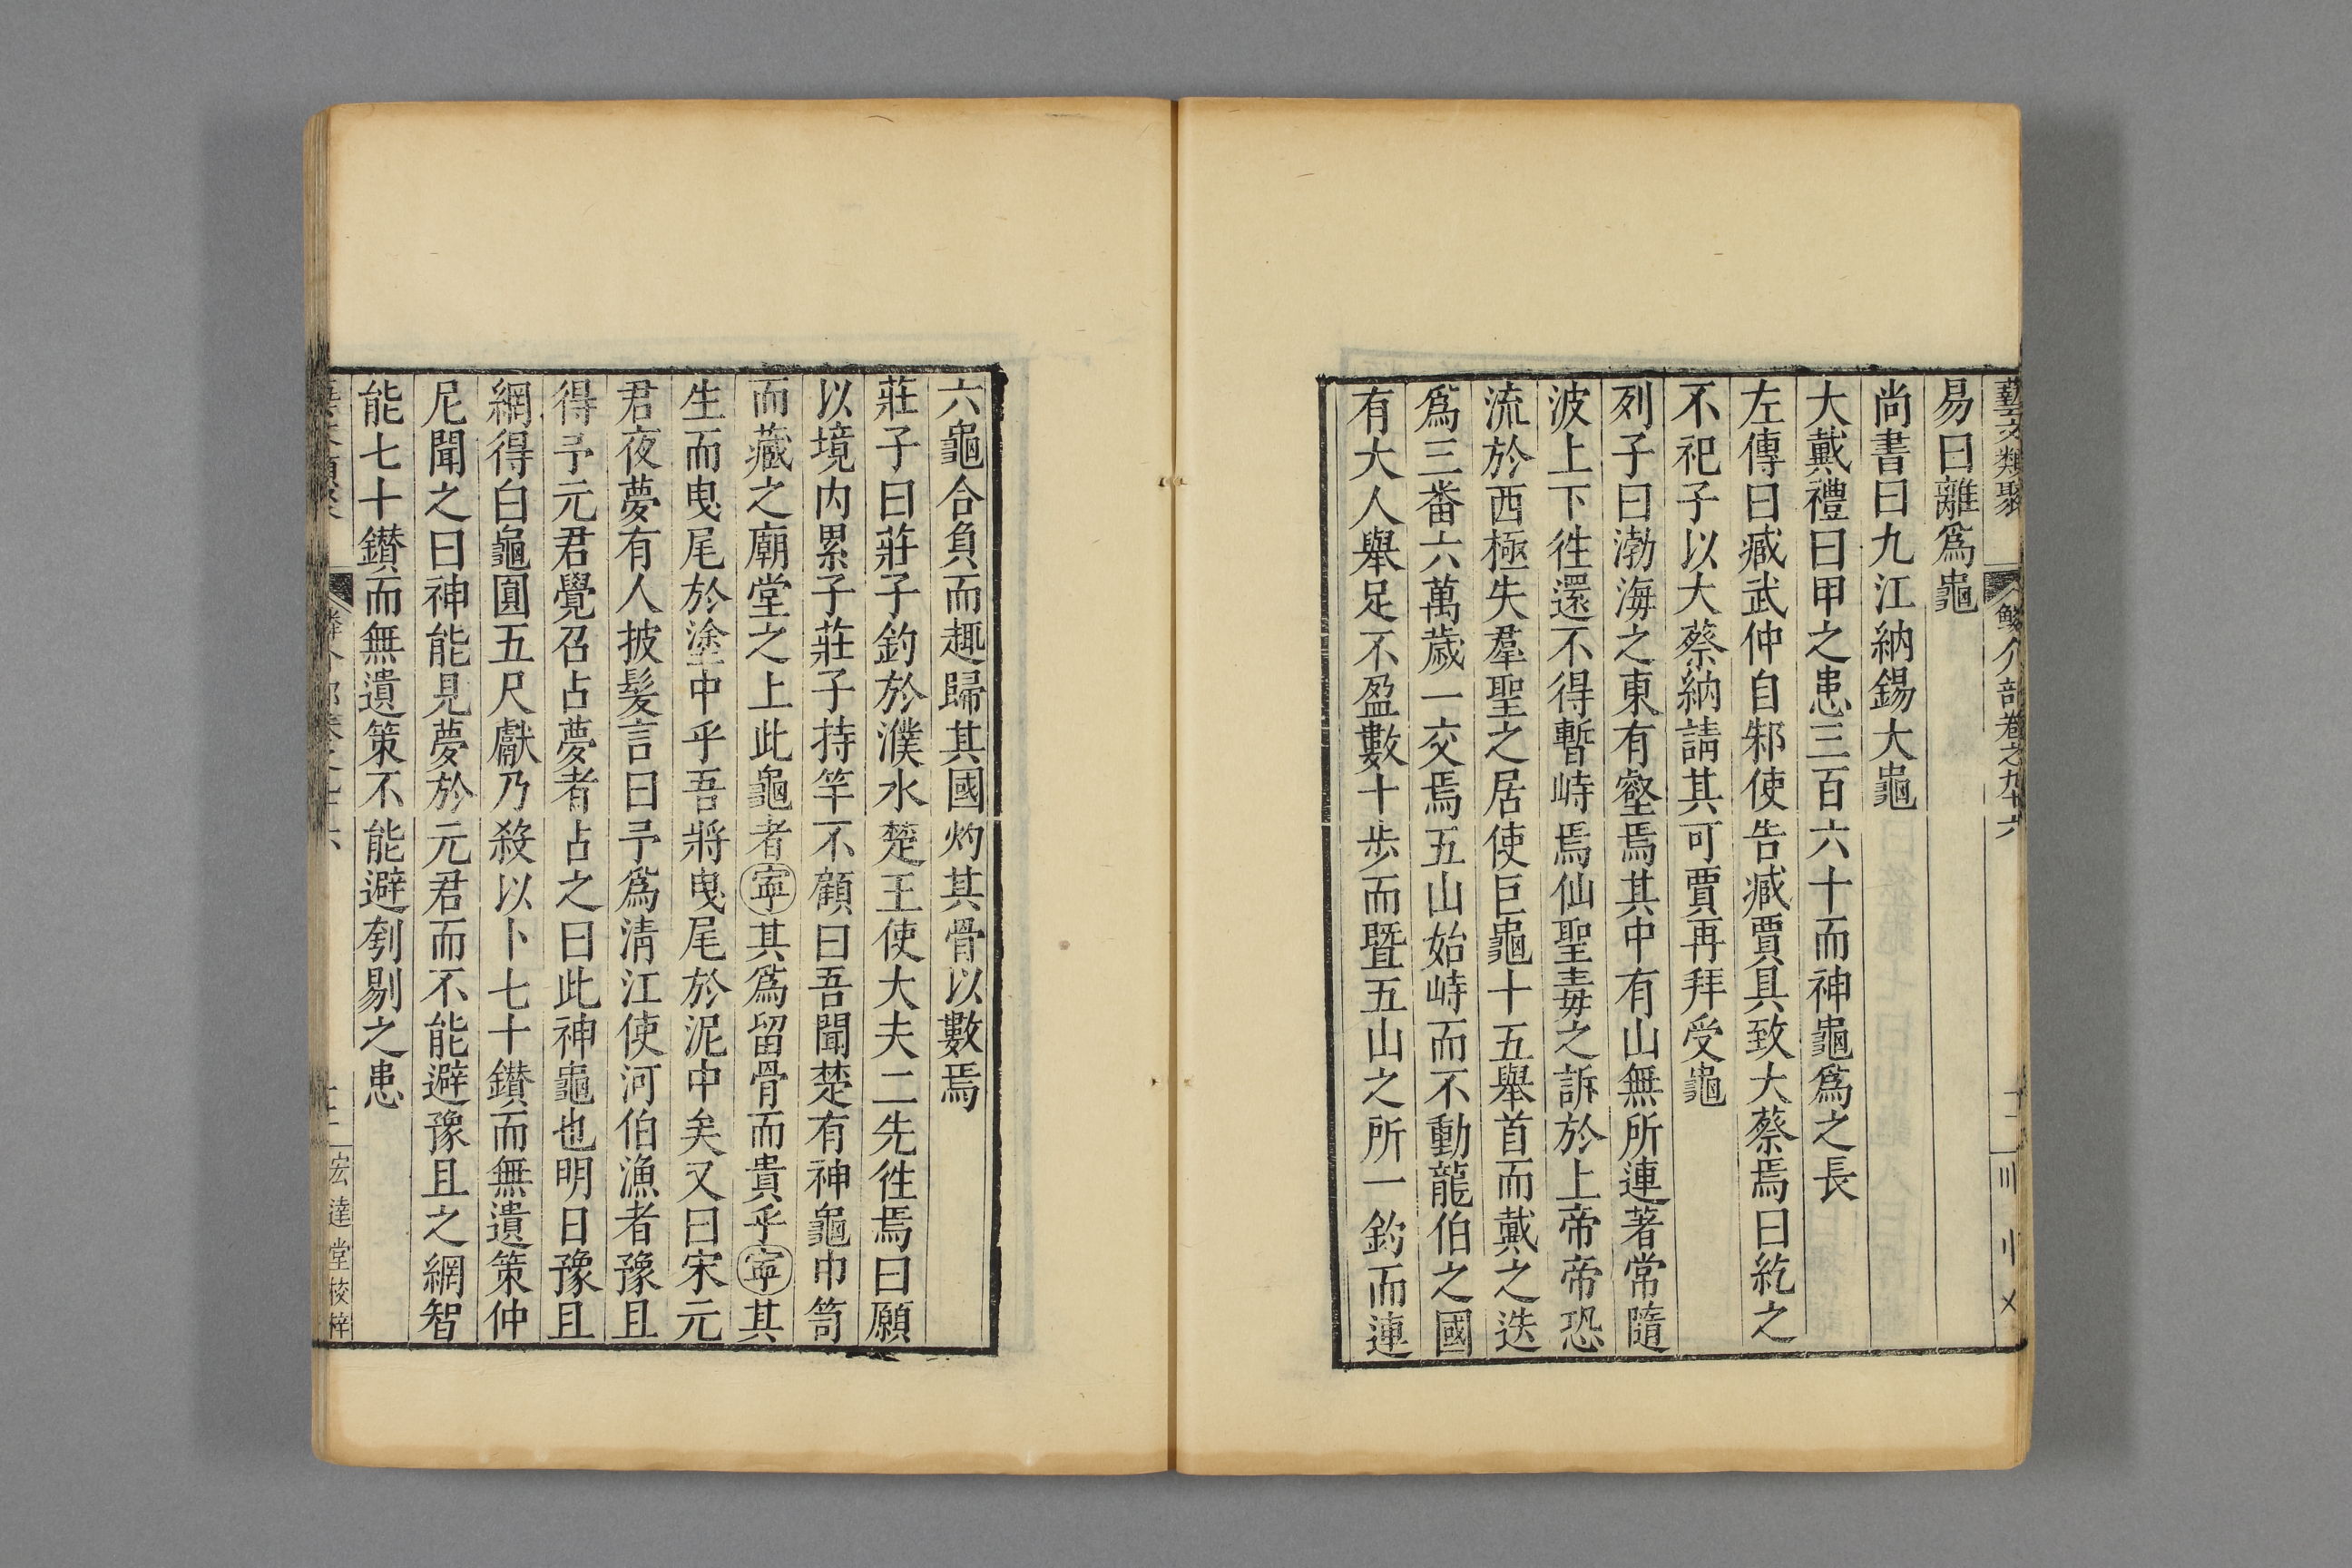 藝文類聚 鱗介部卷之九十六
易曰離爲龜
尚書曰九江納錫大龜
大戴禮曰甲之患三百六十而神龜爲之長
左傳曰臧武仲自邾使告臧賈具致大蔡焉曰紇之
不祀子以大蔡納請其可賈再拜受龜
列子曰渤海之東有壑焉其中有山無所連著常隨
波上下徃還不得暫峙焉仙聖毒之訴於上帝帝恐
流於西極失羣聖之居使巨龜十五舉首而戴之迭
爲三番六萬歲一交焉五山始峙而不動龍伯之國
有大人舉足不盈數十步而暨五山之所一釣而連
六龜合負而趣歸其國灼其骨以數焉
莊子曰莊子釣於濮水楚王使大夫二先徃焉曰願
以境内累子莊子持竿不顧曰吾聞楚有神龜巾笥
而藏之廟堂之上此龜者寧其爲留骨而貴乎寧其
生而曳尾於塗中乎吾將曳尾於泥中矣又曰宋元
君夜夢有人披髮言曰予爲清江使河伯漁者豫且
得予元君覺召占夢者占之曰此神龜也明日豫且
網得白龜圓五尺獻乃殺以卜七十鑚而無遺策仲
尼聞之曰神能見夢於元君而不能避豫且之網智
能七十鑚而無遺策不能避刳剔之患
宏達堂校梓